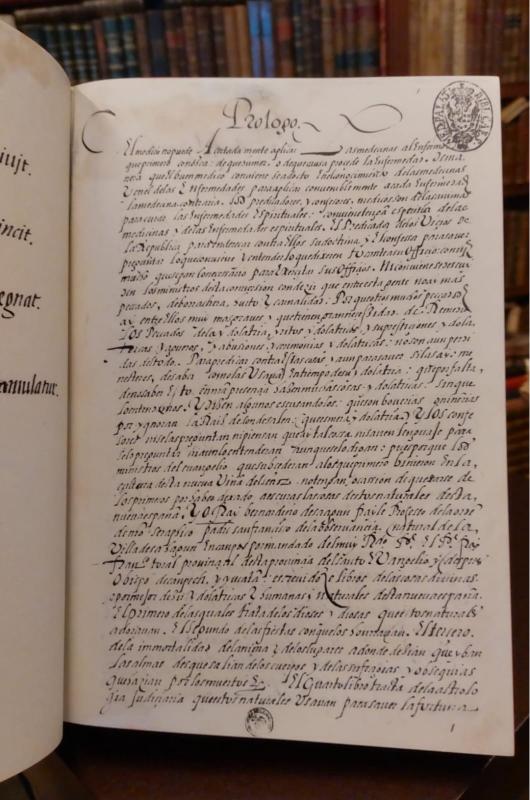 incit.
egnat.
annulatur.
Prologo.
El medico no puede Acertadamente aplicar Las medicinas al enfermo
que primero conosca: de que humor, o de que causa procede la enfermedad. De ma
nera que el buen medico conuiene sea docto en el conocimiento de las medicinas
y en el de las Enfermedades para aplicar conueniblemente a cada Enfermedad
la medicina contraria. Los predicadores, y confesores, medicos son de las animas
para curar las Enfermedades Espirituales: conuiene tengan esperitia de las
medicinas y de las Enfermedades espirituales. El predicador de los Vicios de
la Republica para endereçar contra Ellos su doctrina, y el confesor para saber
preguntar lo que conuiene y entender lo que dixeren tocante a su Officio: conuiene
mucho que sepan lo necessario para Exercitar sus Officios. Ni conuiene se descuy
den los ministros desta conuersion con dezir que entre esta gente no ay mas
peccados, de borrachera, hurto y carnalidad: Por que otros muchos peccados
ay entre Ellos muy mas graues y que tienen gran necessidad de Remedio
Los Peccados de la ydolatria, y ritos ydolatricos, y supersticiones ydola
tricas y agueros, y abusiones y cerimonias ydolatricas: no son aun perdi
das del todo. Para predicar contra estas cosas, y aun para saber si las ay: me
nester es, de saber como las Vsauan En tiempo de su ydolatria: que por falta,
de no saber Esto, en nuestra presencia hazen muchas cosas ydolatricas sin que
lo entendamos. Y dizen algunos escusandolos: que son bouerias o niñerias
por ygnorar la Raiz de donde salen: que es mera ydolatria: y Los confe
sores ni se las preguntan ni piensan que ay tal cosa ni sauen lenguaje para
se lo preguntar ni aun lo entenderan aunque se lo digan: pues porque los
ministros del euangelio que subcederan a los que primero vinieron En la
cultura desta nueua Viña del señor no tengan, ocasion de quexarse de
los primeros por haber dexado ascuras las cosas destos naturales desta
nueua españa. Yo fray bernardino de sahagun frayle Professo de la orde
de nuestro seraphico Padre san francisco de la obseruancia: natural de la
Villa de sahagun En campos por mandado del muy Rdo Pe. El Pe. fray
Franco toral prouincial desta prouincia del sancto Euangelio y despues
Obispo de campech, y yucatan: escreui doze libros de las cosas diuinas.
o por mejor dezir ydolatricas y humanas y naturales desta nueua españa.
El primero de los quales trata de los dioses y diosas que estos naturales
adorauan. El segundo de las fiestas con que los honrrauan. El tercero.
de la inmortalidad del anima y de los lugares a donde dezian que yban
las almas desque salian de los cuerpos y de los sufragios y obsequias
que hazian por los muertos. El Quarto libro tracta de la astrolo
gia Judiciaria que estos naturales Vsauan para sauer la fortuna
1